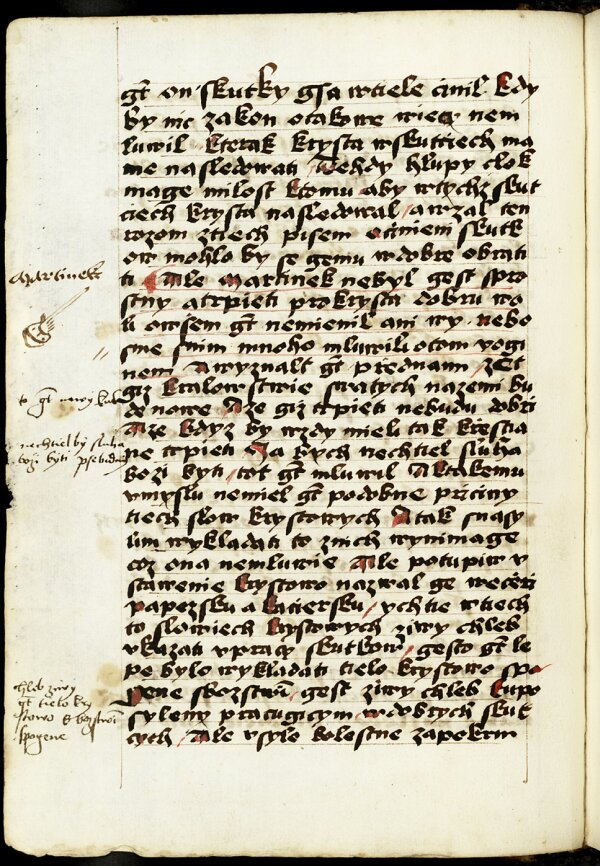 gt on skutky gsa wtiele cinil Kdy
by nic zakon otakowe wiecz nem
luwil kterak krysta wskutciech ma
me nasledowati Tehdy hlupy clok
mage milost ktomu aby wtychz skut
ciech krysta nasledowal a wzal ten
rozom ztiech pisem o cinieni skutk
ow mohlo by se gemu wdobre obrati
ti Ale Martinek nebyl gest spro
stny a trpieti prokrysta dobru wo
li owsem gt nemienil ani wy nebo
sme snim mnoho mluwili o tom vogi
nem A wyznalt gt przednami zet
giz kralowstwie swatych nazemi bu
de nowe A ze giz trpieti nebudu dobri
A ze kdyz by wzdy mieli tak krestia
ne trpieti Ja bych nechtiel sluha
bozi byti tot gt mluwil A ktakemu
vmyslu nemiel gt podobne priciny
tiech slow krystowych A tak snasy
lim wykladati to znich wynimage
coz ona nemluwie Ale potupiw v
stawenie krystowo nazwal ge weceri
papezsku a katiersku vchtie wtiech
to slowiech krystowych ziwy chleb
vkazati vpraci skutkow gesto gt le
pe bylo wykladati tielo krystowo spo
gene sbozstwim gest ziwy chleb kupo
syleny pracugicym wdobrych skut
cych Ale vsyle bolestne zapekrm
Martinek
to gt nowy
nechtiel by sluha
bozi byti
chleb ziwy
gt tielo kry
stowo
spogene